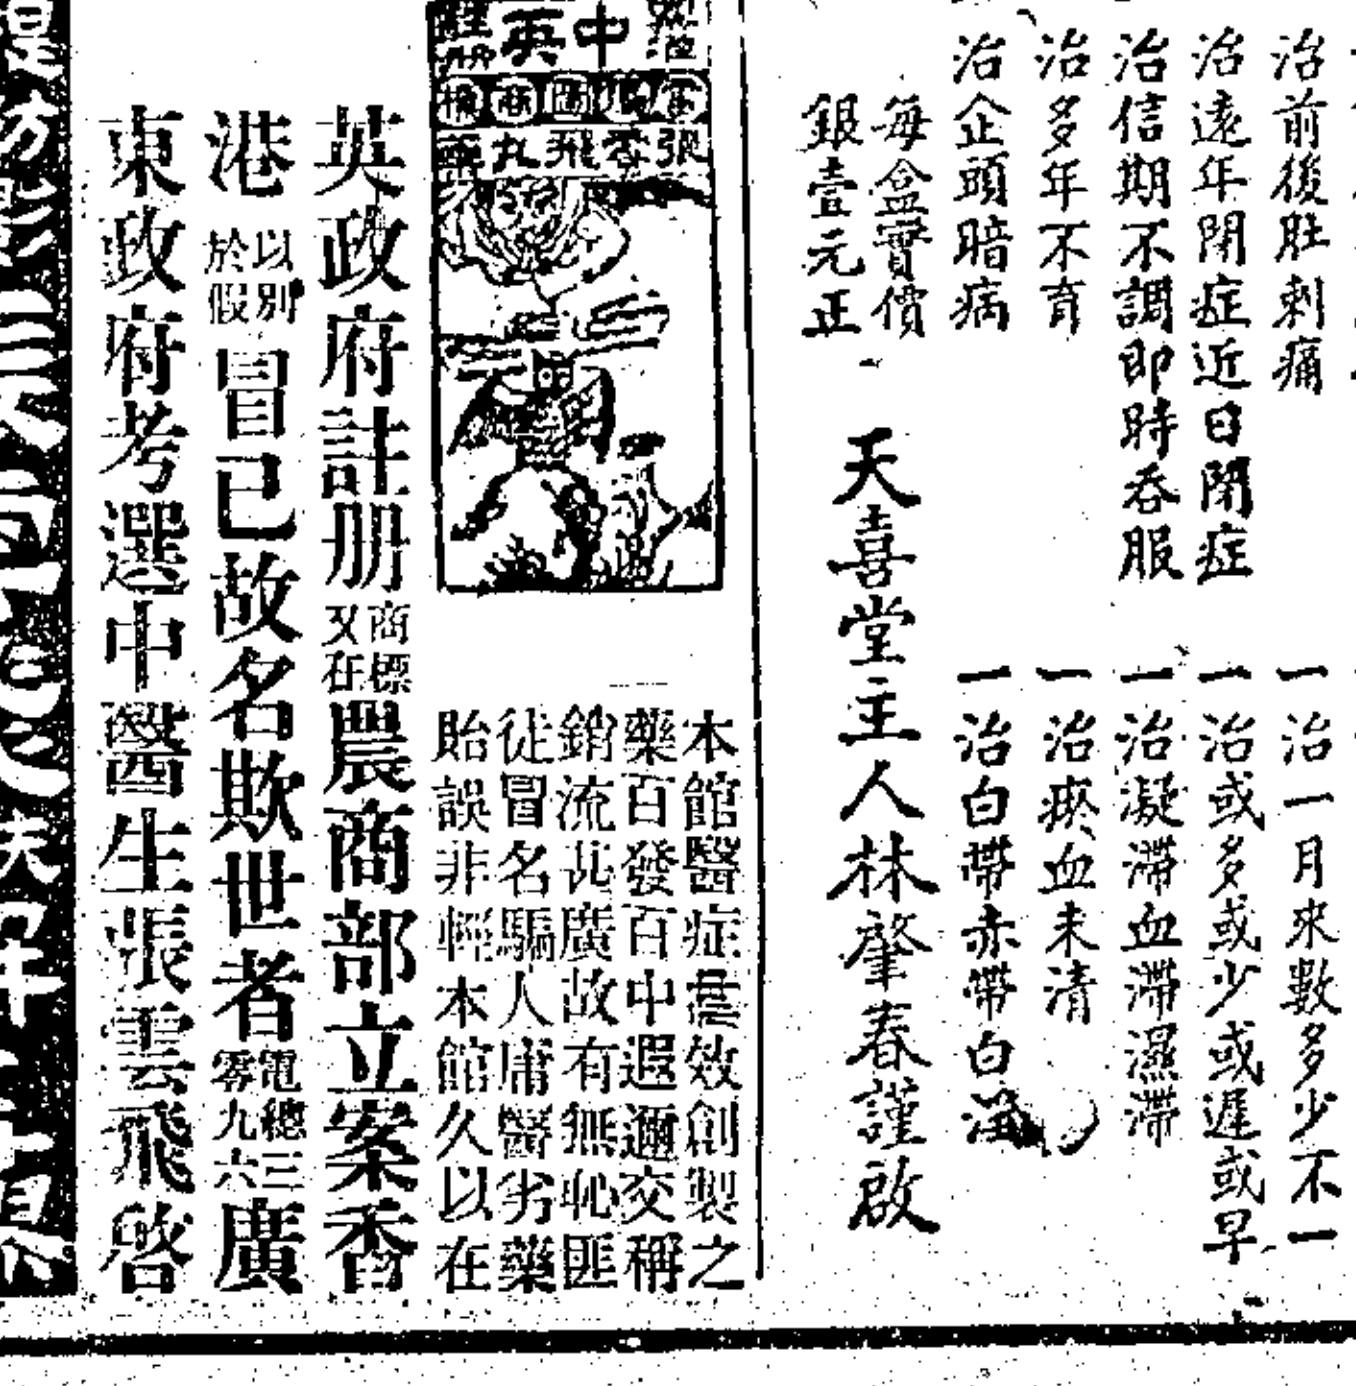 治前後肚刺痛
一治一月來數多少不一
治遠年閉症近日閉症
一治或多或少或遲或早
治信期不調即時吞服
一治凝滯血滯濕滯
治多年不育
一治瘀血未清
治企頭暗病
一治白帶赤帶白淫
每盒實價
銀壹元正
天喜堂主人林肇春謹啟
中英
張雲飛丸藥
本館醫症靈效創製之
藥百發百中遐邇交稱
銷流尤廣故有無恥匪
徒冒名騙人庸醫劣藥
貽誤非輕本館久以在
英政府註册商標又在農商部立案香
港以別於假冒已故名欺世者電總三零九六廣
東政府考選中醫生張雲飛啓